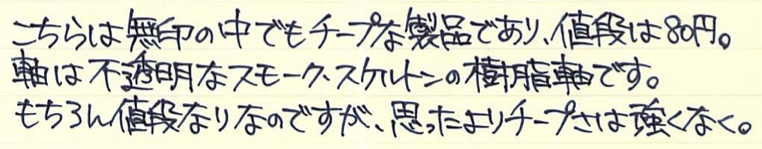 こちらは無印の中でもチープな製品であり、値段は80円。
軸は不透明なスモーク・スケルトンの樹脂軸です。
もちろん値段なりなのですが、思ったよりチープさは強くなく。